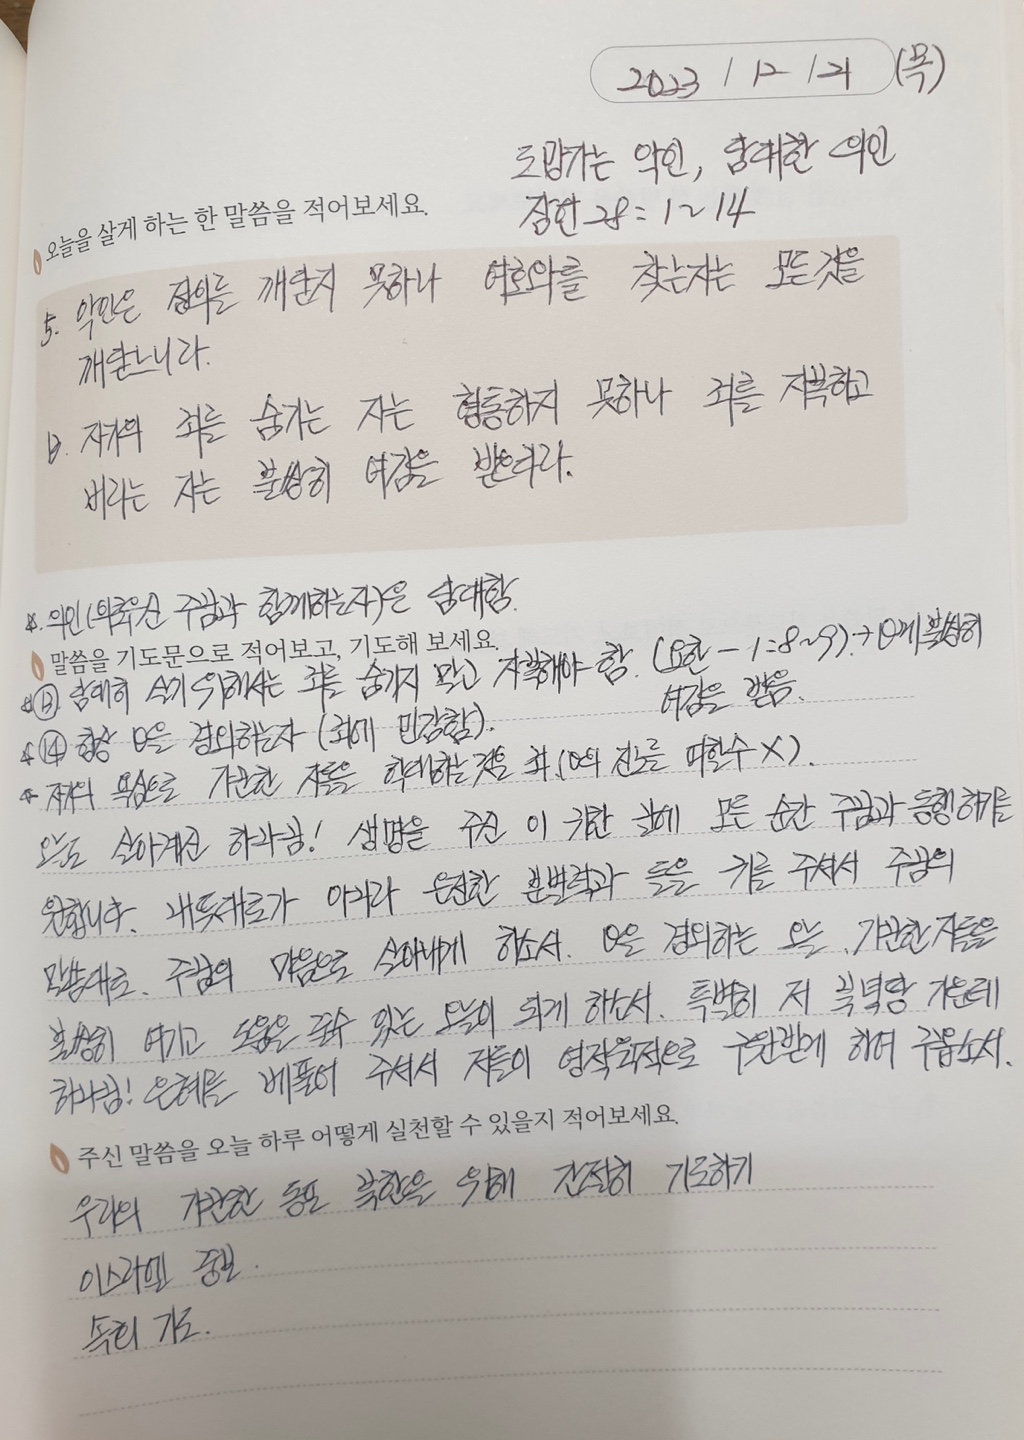 2023 / 12 / 21 (목)
도망가는 악인, 담대한 의인
잠언 28 : 1~14
오늘을 살게 하는 한 말씀을 적어보세요.
5. 악인은 정의를 깨닫지 못하나 여호와를 찾는자는 모든것을
깨닫느니라.
13. 자기의 죄를 숨기는 자는 형통하지 못하나 죄를 자복하고
버리는 자는 불쌍히 여김을 받으리라.
*. 의인(의로우신 주님과 함께하는자)은 담대함.
말씀을 기도문으로 적어보고, 기도해 보세요.
* ⑬ 담대히 살기 위해서는 죄를 숨기지 말고 자복해야 함. (요한 - 1:8~9). → θ께 불쌍히
여김을 받음.
* ⑭ 항상 θ을 경외하는자 (죄에 민감함).
* 자기의 욕심으로 가난한 자들을 학대하는것은 죄. (θ의 진노를 피할수 X).
오늘도 살아계신 하나님! 생명을 주신 이 귀한 날에 모든 순간 주님과 동행하기를
원합니다. 내뜻대로가 아니라 온전한 분별력과 듣는 귀를 주셔서 주님의
말씀대로. 주님의 마음으로 살아내게 하소서. θ을 경외하는 오늘, 가난한 자들을
불쌍히 여기고 도움을 줄수 있는 오늘이 되게 하소서. 특별히 저 북녘땅 가운데
하나님! 은혜를 베풀어 주셔서 저들이 영적육적으로 구원받게 하여 주옵소서.
주신 말씀을 오늘 하루 어떻게 실천할 수 있을지 적어보세요.
우리의 가난한 동포 북한을 위해 간절히 기도하기
이스라엘 중보.
속회 기도.